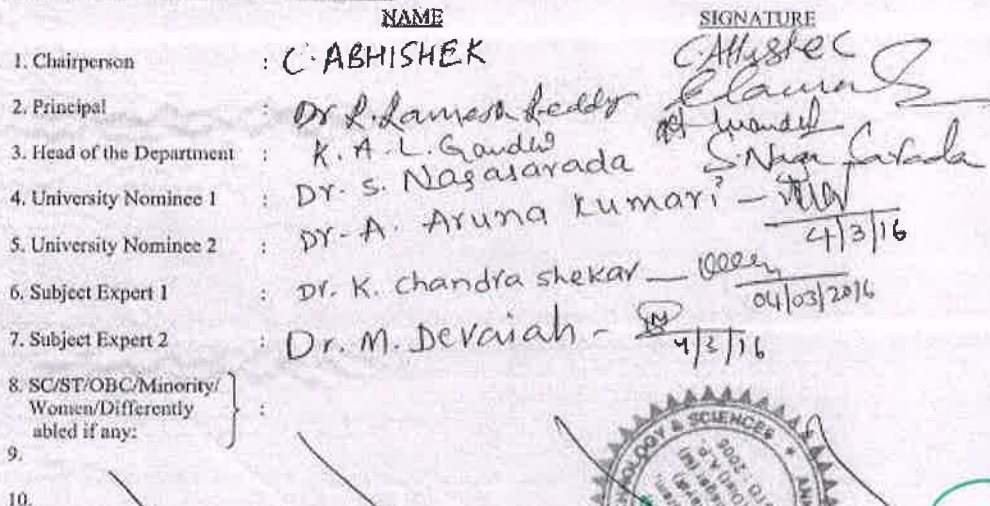 NAME SIGNATURE
1. Chairperson : C. ABHISHEK C Abhishek
2. Principal : Dr L. Lamesh Leddy
3. Head of the Department : K. A. L. Gandhi
4. University Nominee 1 : Dr. S. Nagasarada S. Naga Sarada
5. University Nominee 2 : Dr. A. Aruna Kumari - 4/3/16
6. Subject Expert 1 : Dr. K. Chandra shekar - 04/03/2016
7. Subject Expert 2 : Dr. M. Devaiah - 4/3/16
8. SC/ST/OBC/Minority/
Women/Differently :
abled if any:
9.
10.
OLOGY & SCIENCES